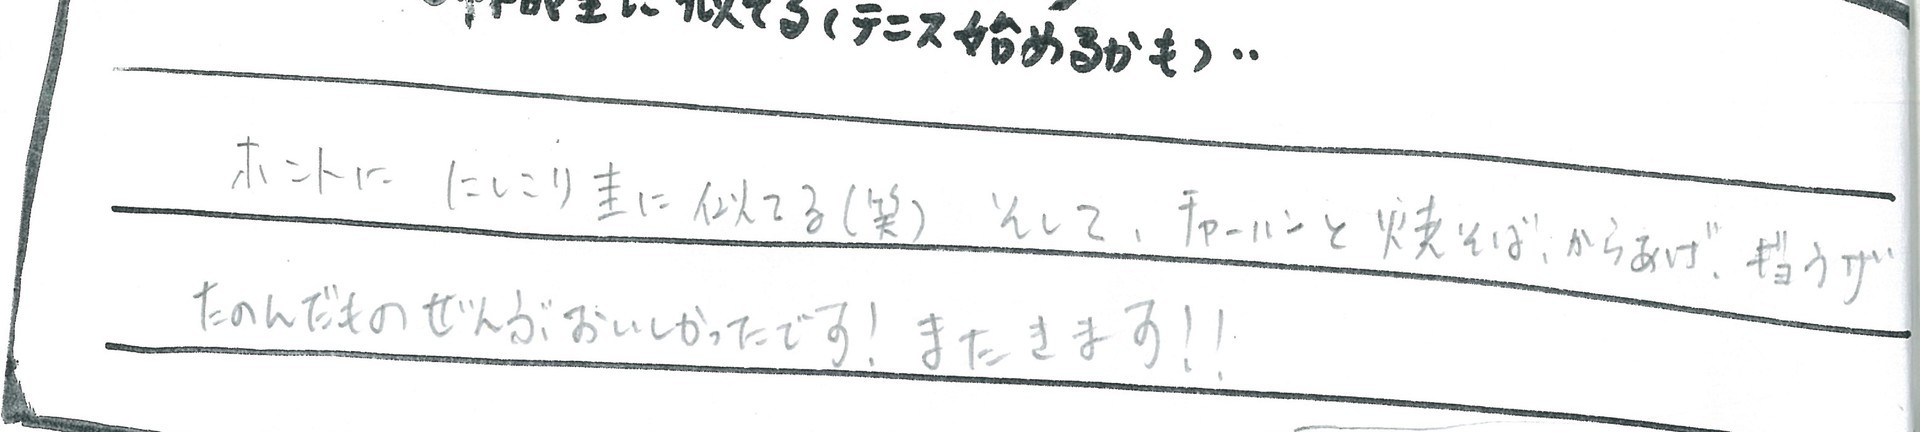 圭に似てる(テニス始めるかも)‥
ホントに にしこり圭に似てる(笑) そして、チャーハンと焼そば、からあげ、ギョウザ
たのんだものぜんぶおいしかったです! またきます!!